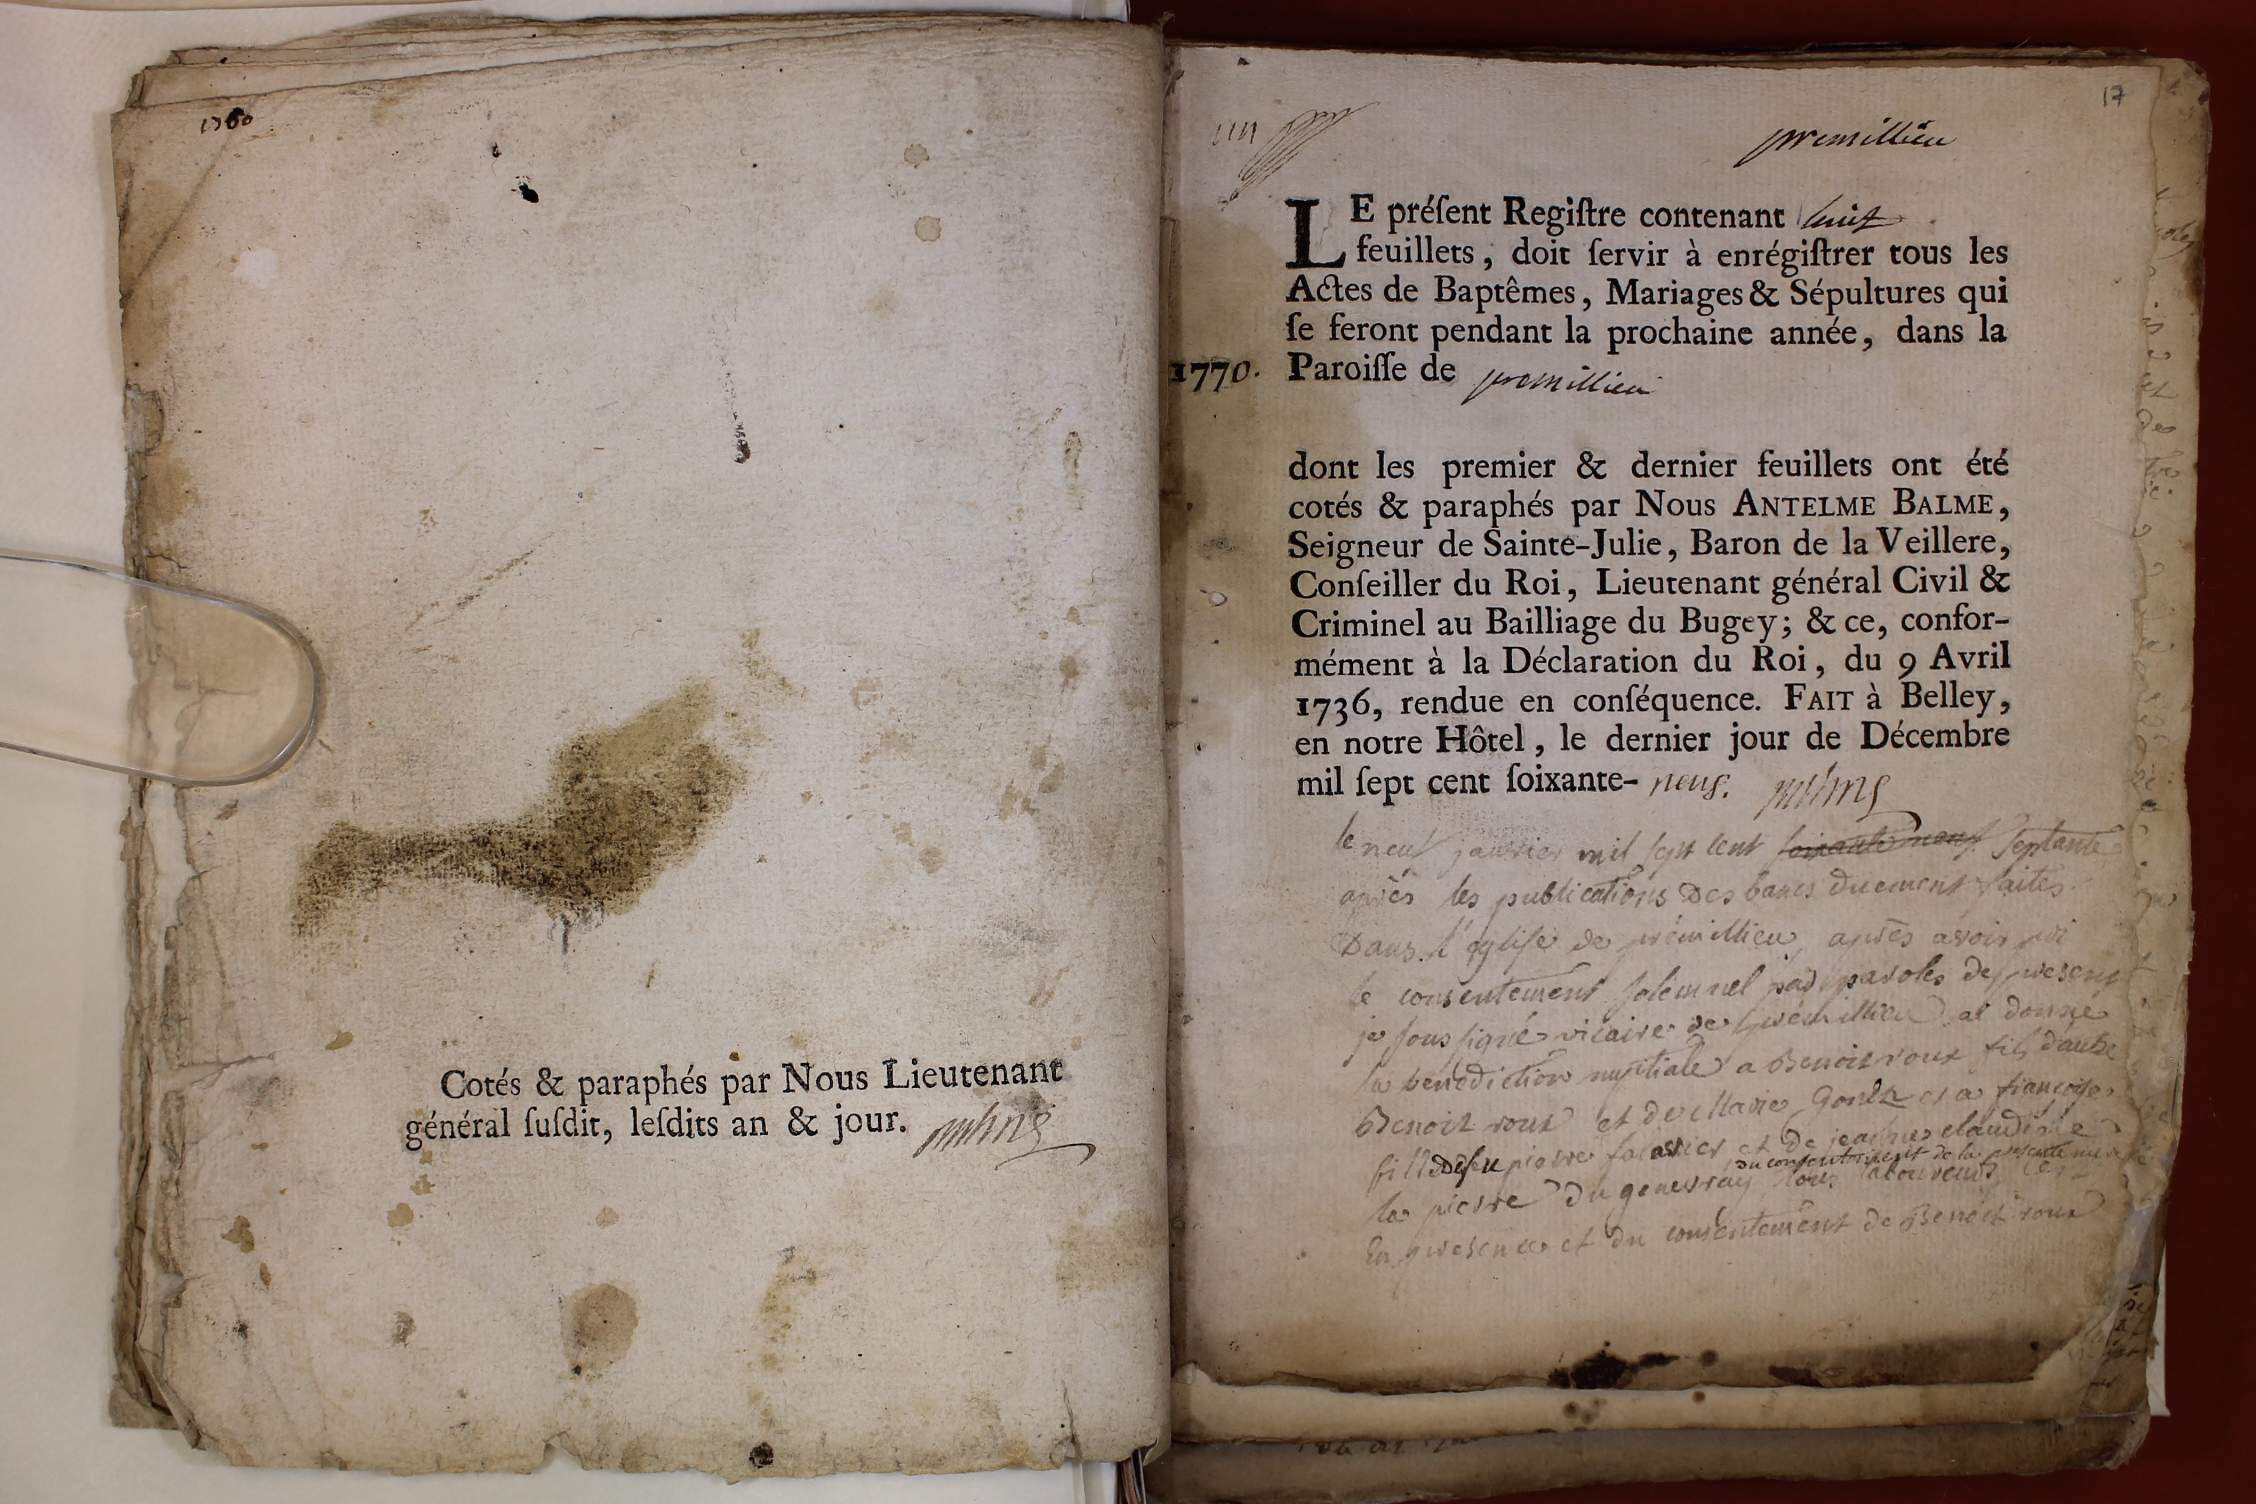 1760
Cotés & paraphés par Nous Lieutenant
général ſuſdit, leſdits an & jour.
17
premillieu
LE préſent Regiſtre contenant huit
feuillets, doit ſervir à enrégiſtrer tous les
Actes de Baptêmes, Mariages & Sépultures qui
ſe feront pendant la prochaine année, dans la
1770. Paroiſſe de premillieu
dont les premier & dernier feuillets ont été
cotés & paraphés par Nous ANTELME BALME,
Seigneur de Sainte-Julie, Baron de la Veillere,
Conſeiller du Roi, Lieutenant général Civil &
Criminel au Bailliage du Bugey; & ce, confor-
mément à la Déclaration du Roi, du 9 Avril
1736, rendue en conſéquence. FAIT à Belley,
en notre Hôtel, le dernier jour de Décembre
mil ſept cent ſoixante- neuf.
le neuf janvier mil sept cent soixante neuf septante
après les publications des bancs duement faites
Dans l'église de prémillieu, après avoir
le consentement solemnel par paroles de present
je soussigné vicaire de prémillieu ai donné
la benediction nuptiale a Benoit roux fils d'autre
Benoit roux et de Marie et a françoise
fille de feu pierre et de jeanne claudine
du consentement de la presente mere
la pierre du genevray tous laboureurs
En presence et du consentement de Benoit roux